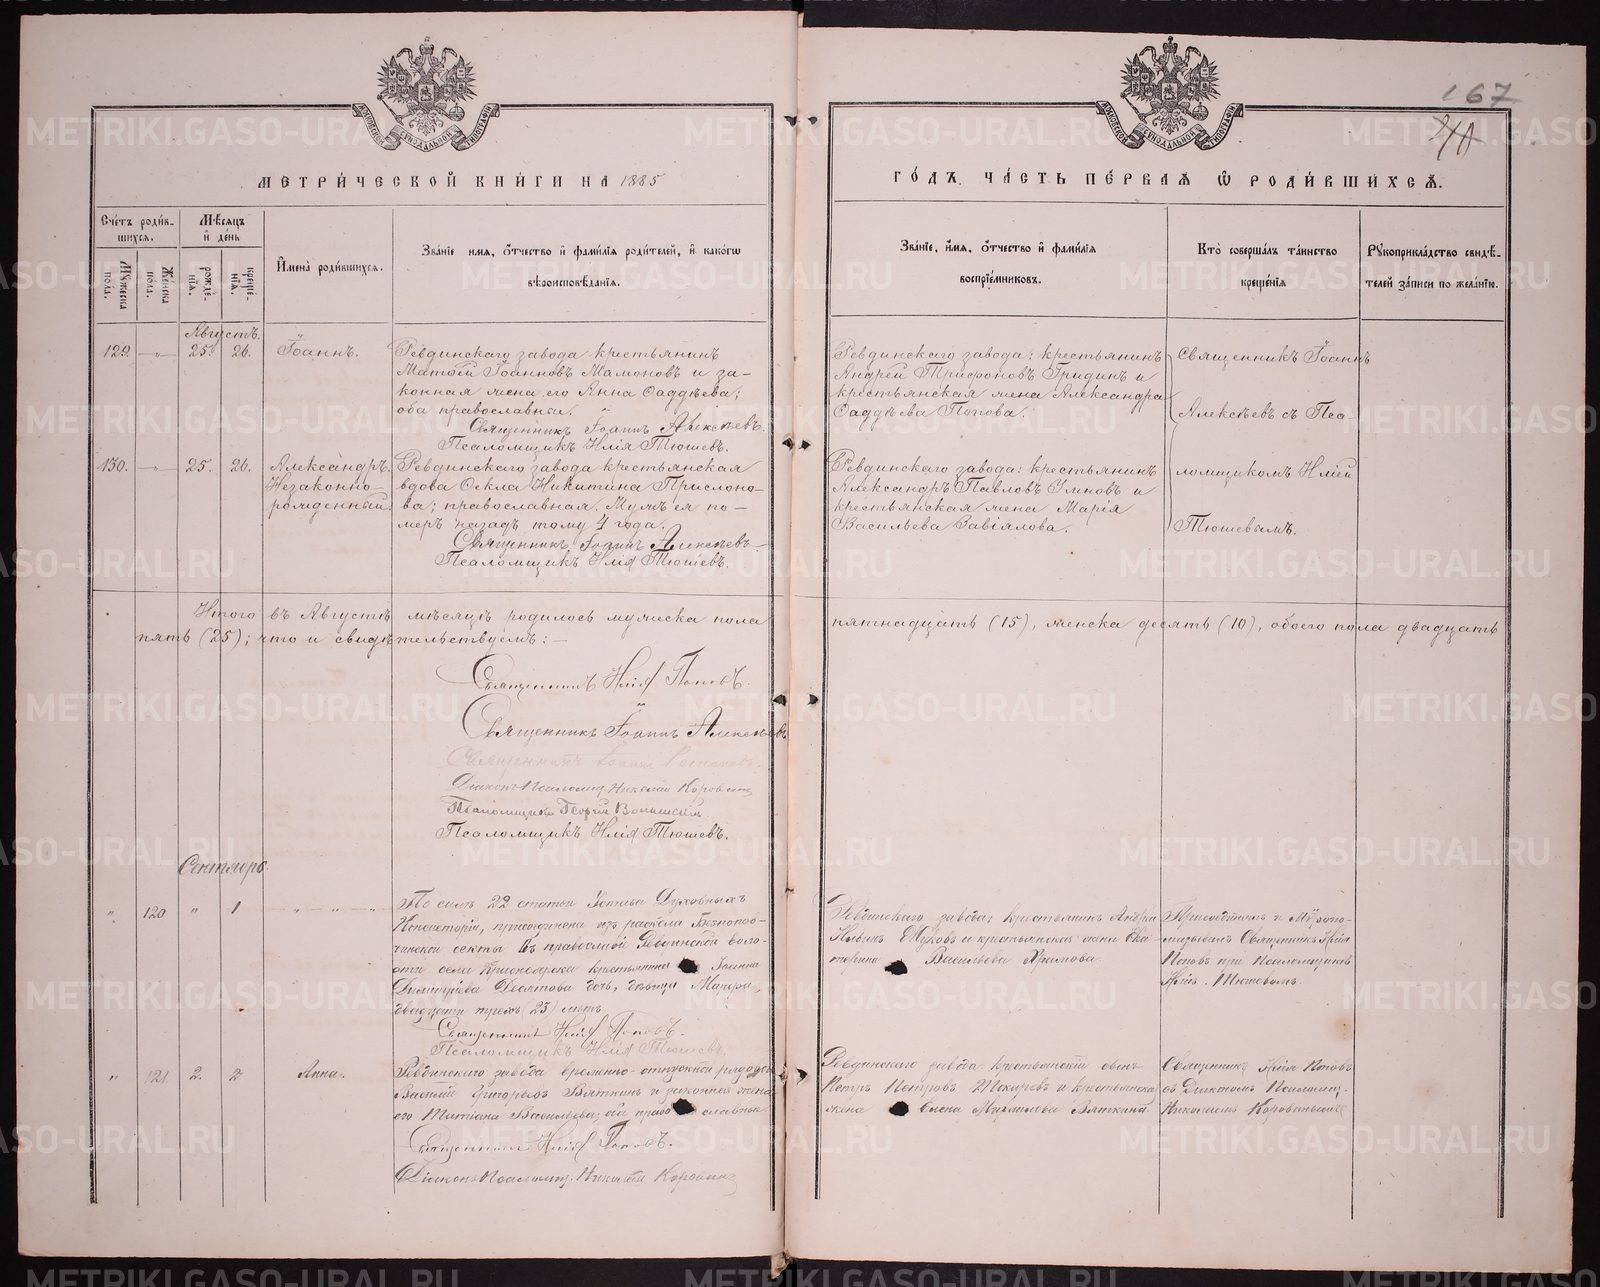 МЕТРИЧЕСКОЙ КНИГИ НА 1885
Счетъ родив-
шихся.
Мужеска пола.
Женска пола.
Мѣсяцъ и день
рожде-
нія.
креще-
нія.
Имена родившихся.
Званіе имя, отчество и фамилія родителей, и какогѡ
вѣроисповѣданія.
Августъ.
129. — „ — 25. 26. Іоаннъ.
Ревдинскаго завода крестьянинъ
Матѳей Іоанновъ Мамоновъ и за-
конная жена его Анна Ѳаддѣева;
оба православные.
Священникъ Іоаннъ Алексѣевъ.
Псаломщикъ Илія Тюшевъ.
130. — „ — 25. 26. Александръ.
Незаконно-
рожденный
Ревдинскаго завода крестьянская
вдова Ѳекла Никитина Прислоно-
ва; православная. Мужъ ея по-
меръ назадъ тому 4 года.
Священникъ Іоаннъ Алексѣевъ
Псаломщикъ Илія Тюшевъ.
Итого въ Августѣ мѣсяцѣ родилось мужеска пола
пять (25); что и свидѣтельствуемъ: —
Священникъ Илія Поповъ.
Священникъ Іоаннъ Алексѣевъ
Священникъ Іоаннъ
Діаконъ Псаломщ. Николай
Псаломщикъ Георгій
Псаломщикъ Илія Тюшевъ.
Сентябрь.
„ 120 „ 1 „ — „ — „
По силѣ 22 статьи Устава Духовныхъ
Консисторій, присоединена изъ раскола Безпопов-
чинской секты къ православной Ревдинской воло-
сти села Краснояра крестьянина Іоанна
Димитріева Десятова дочь, дѣвица Мавра,
двадцати трехъ (23) лѣтъ
Священникъ Илія Поповъ.
Псаломщикъ Илія Тюшевъ.
„ 121 2. 2 Анна.
Ревдинскаго завода временно-отпускной рядовой
Василій Григорьевъ Вяткинъ и законная жена
его Татіана Васильева; оба православные
Священникъ Илія Поповъ.
Діаконъ Псаломщ. Николай
167
ГОДЪ, ЧАСТЬ ПЕРВАЯ Ѡ РОДИВШИХСЯ.
Званіе, имя, отчество и фамилія
воспріемниковъ.
Кто совершалъ таинство
крещенія
Рукоприкладство свидѣ-
телей записи по желанію.
Ревдинскаго завода: крестьянинъ
Андрей Трифоновъ Гридинъ и
крестьянская жена Александра
Ѳаддѣева Попова.
Священникъ Іоаннъ
Алексѣевъ съ Пса-
Ревдинскаго завода: крестьянинъ
Александръ Павловъ Умновъ и
крестьянская жена Марія
Васильева Завіялова.
ломщикомъ Иліей
Тюшевымъ.
пятнадцать (15), женска десять (10), обоего пола двадцать
Ревдинскаго завода: крестьянинъ Андрей
Ильинъ и крестьянская жена Ека-
терина Васильева Храмова.
Присоединилъ и Мѵропо-
мазывалъ Священникъ Илія
Поповъ при Псаломщикѣ
Иліи Тюшевомъ.
Ревдинскаго завода: крестьянскій сынъ
Петръ Петровъ и крестьянская
жена Елена Вяткина.
Священникъ Илія Поповъ
съ Діакономъ Псаломщ.
Николаемъ
METRIKI.GASO-URAL.RU